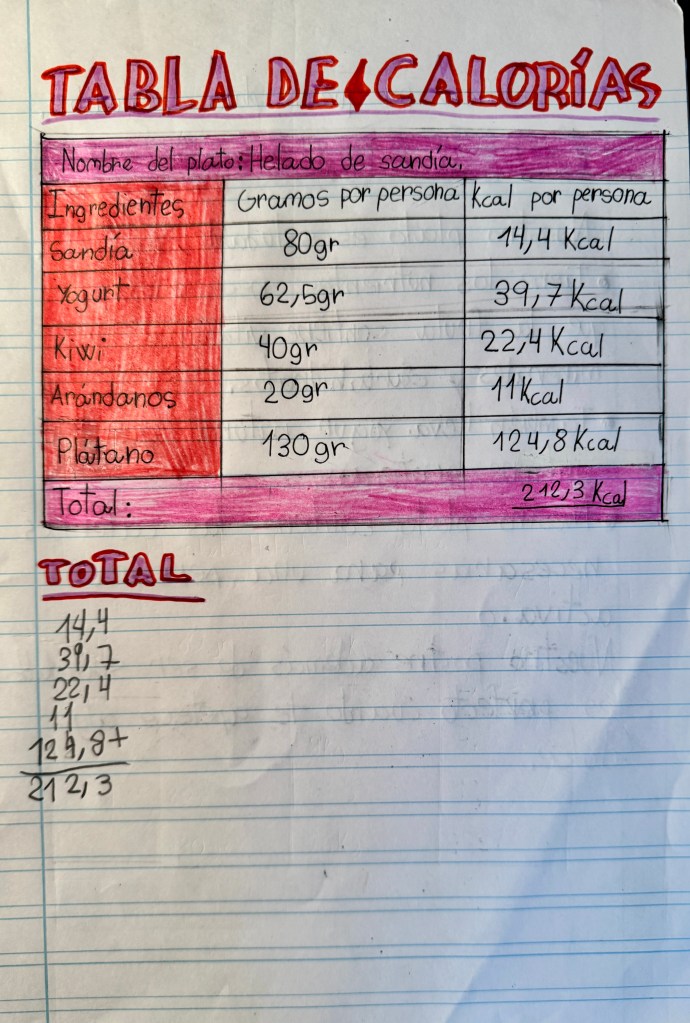 TABLA DE CALORÍAS
Nombre del plato: Helado de sandía.
Ingredientes Gramos por persona Kcal por persona
Sandía 80gr 14,4 Kcal
Yogurt 62,5gr 39,7 Kcal
Kiwi 40gr 22,4 Kcal
Arándanos 20gr 11 Kcal
Plátano 130gr 124,8 Kcal
Total: 212,3 Kcal
TOTAL
14,4
39,7
22,4
11
124,8+
212,3